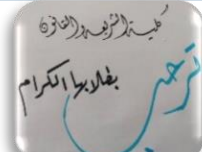 كلية الشريعة والقانون
ترحب
بطلابها الكرام